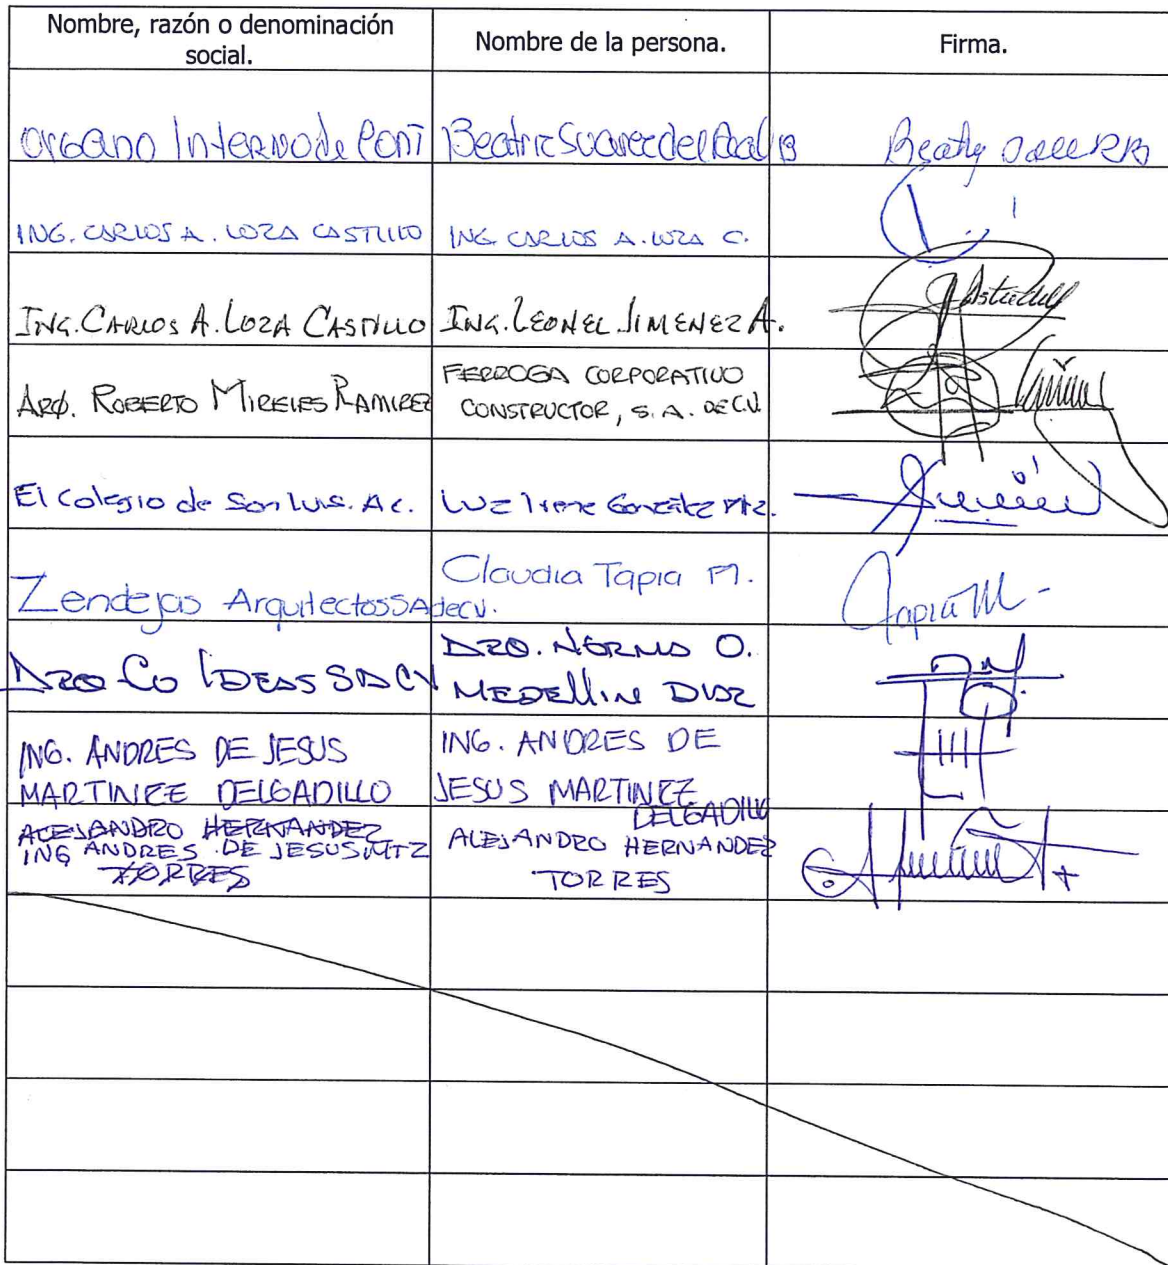 Nombre, razón o denominación
social.
Nombre de la persona.
Firma.
Organo Interno de Cont
Beatriz Suarez del Real B
ING. CARLOS A. LOZA CASTILLO
ING CARLOS A. LOZA C.
ING. CARLOS A. LOZA CASTILLO
ING. LEONEL JIMENEZ A.
ARQ. ROBERTO MIRELES RAMIREZ
FERROGA CORPORATIVO
CONSTRUCTOR, S. A. DE C.V.
El Colegio de San Luis. A.C.
Luz Irene González Mtz.
Zendejas Arquitectos SA de CV.
Claudia Tapia M.
Tapia M -
ARQ CO IDEAS SA CV
ARQ. NORMA O.
MEDELLIN DIAZ
ING. ANDRES DE JESUS
MARTINEZ DELGADILLO
ING. ANDRES DE
JESUS MARTINEZ
DELGADILLO
ALEJANDRO HERNANDEZ
ING ANDRES DE JESUS MTZ
TORRES
ALEJANDRO HERNANDEZ
TORRES